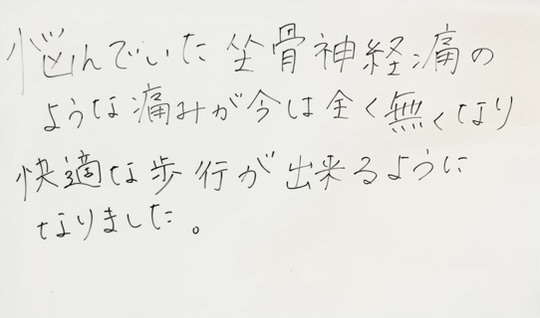 悩んでいた坐骨神経痛の
ような痛みが今は全く無くなり
快適な歩行が出来るように
なりました。